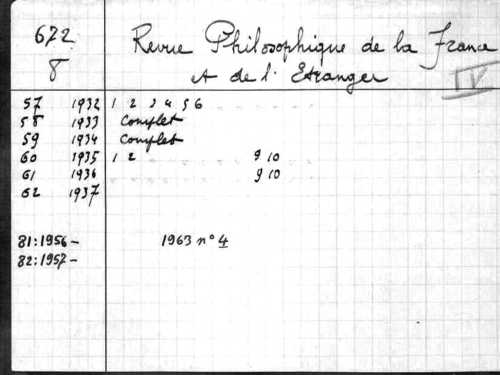 672
8
Revue Philosophique de la France
et de l'Etranger
IV
57 1932 1 2 3 4 5 6
58 1933 Complet
59 1934 Complet
60 1935 1 2 9 10
61 1936 9 10
62 1937
81:1956- 1963 n° 4
82:1957-